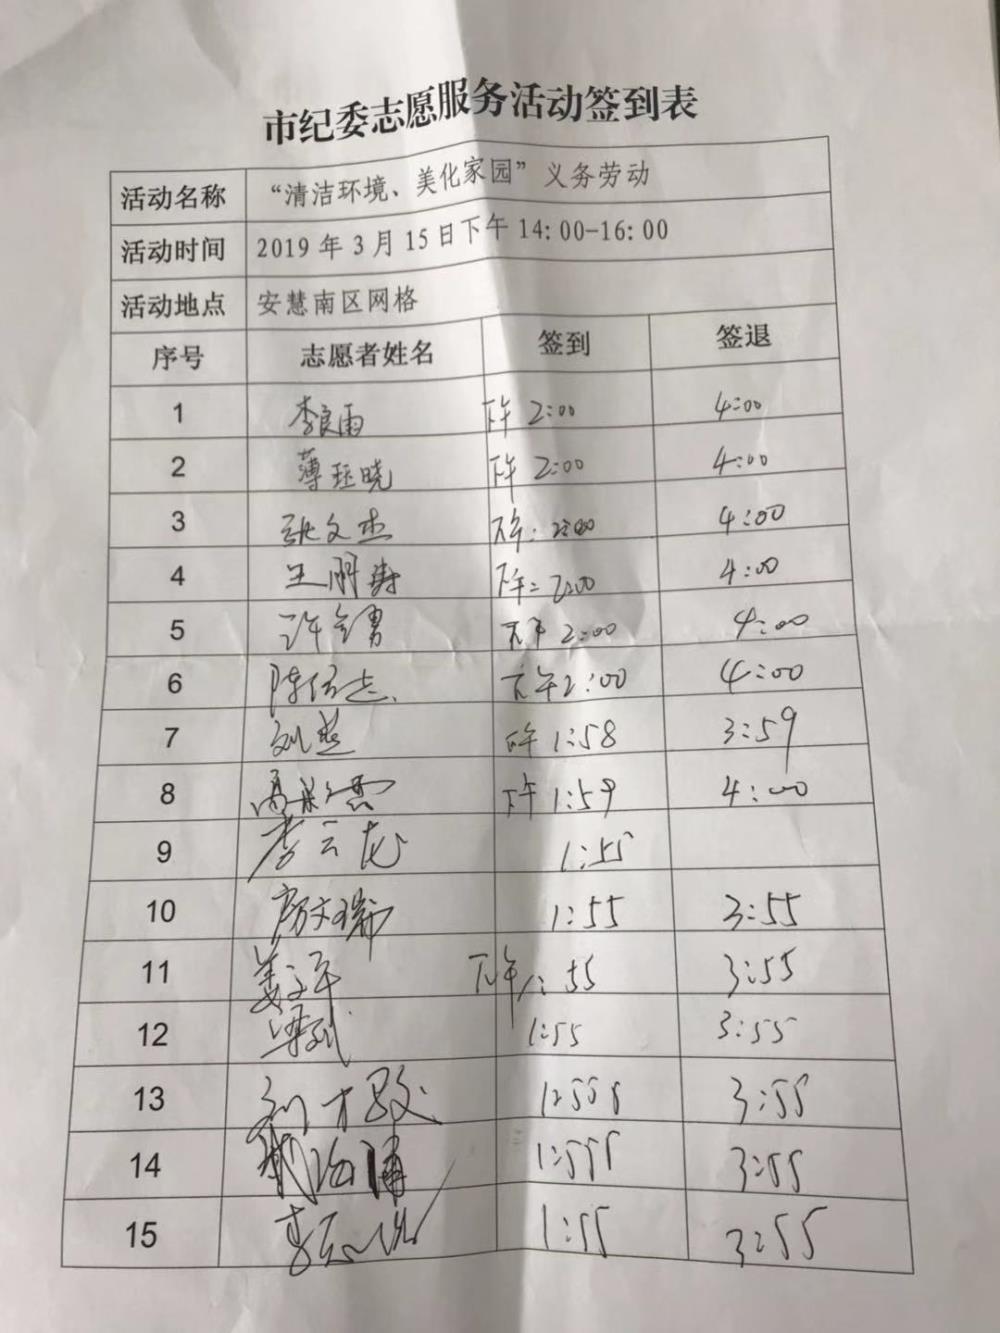 市纪委志愿服务活动签到表
活动名称 “清洁环境、美化家园”义务劳动
活动时间 2019年3月15日下午14:00-16:00
活动地点 安慧南区网格
序号 志愿者姓名 签到 签退
1 李良雨 下午 2:00 4:00
2 薄珏晓 下午 2:00 4:00
3 张文杰 下午: 2:00 4:00
4 王朋涛 下午: 2:00 4:00
5 许金勇 下午 2:00 4:00
6 陈伍志 下午2:00 4:00
7 刘燕 下午 1:58 3:59
8 下午 1:59 4:00
9 李云龙 1:55
10 房文瑞 1:55 3:55
11 姜文军 下午1:55 3:55
12 1:55 3:55
13 3:55
14 3:55
15 1:55 3:55